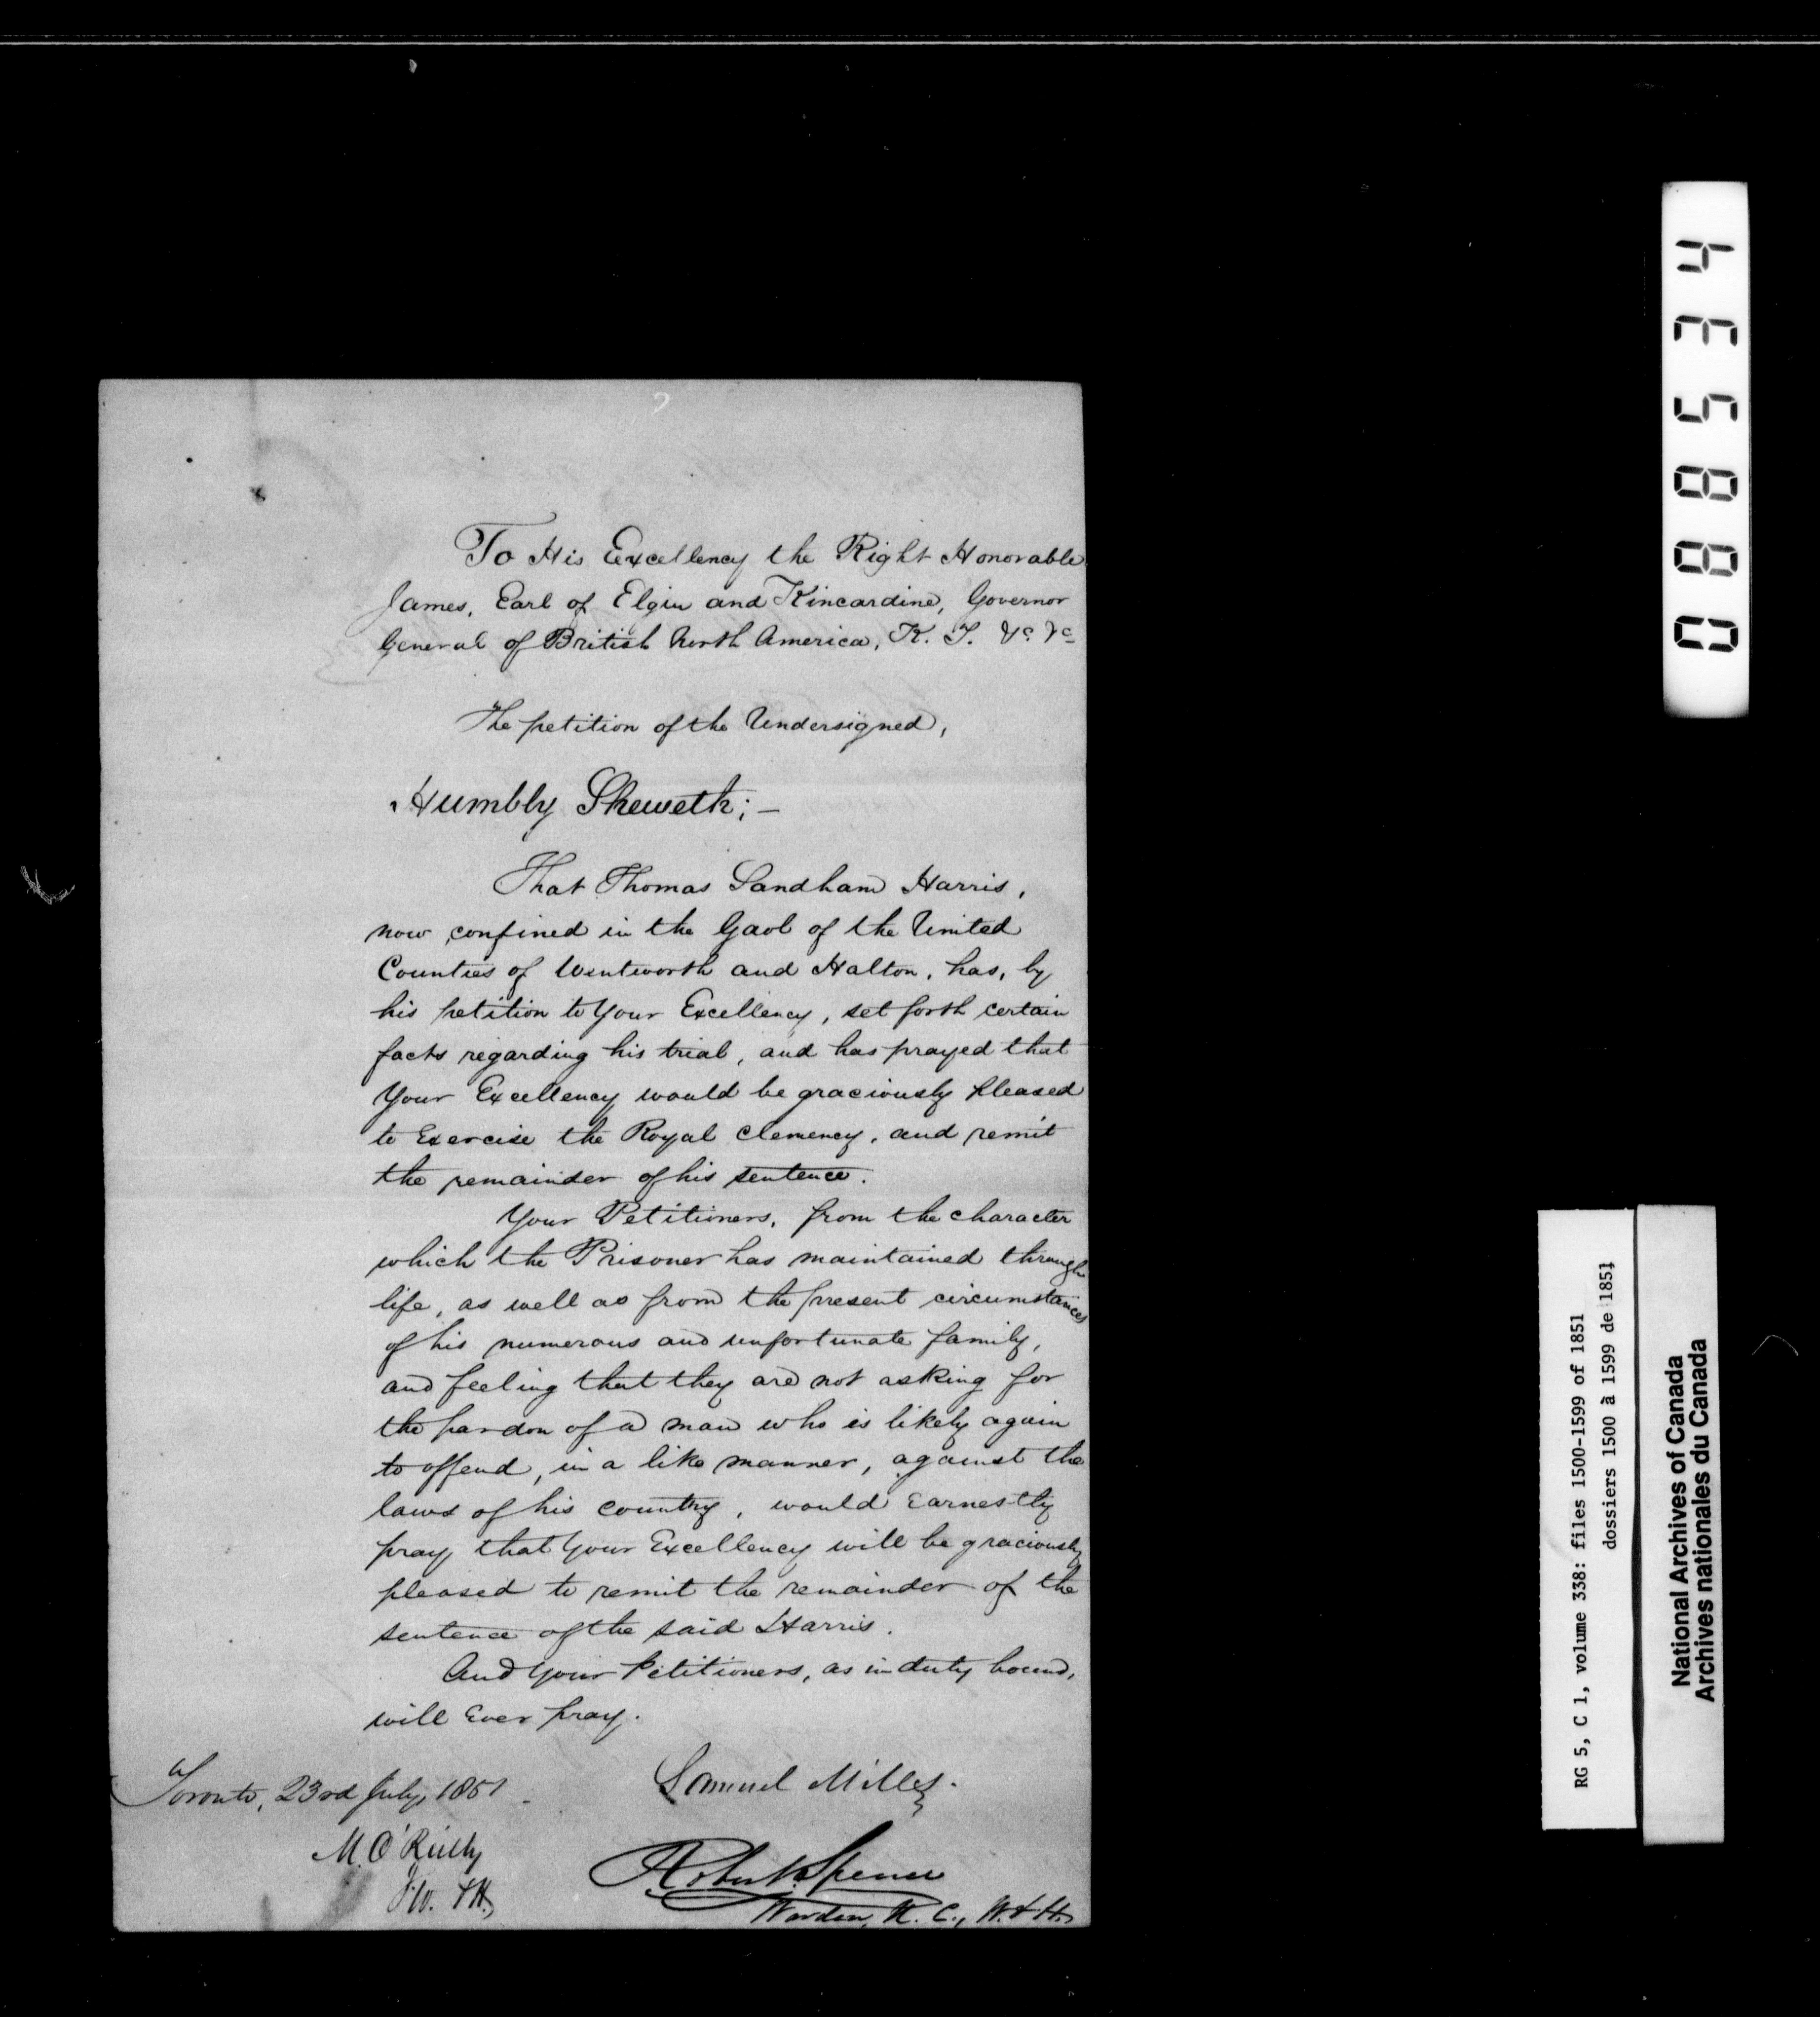 To His Excellency the Right Honorable
James, Earl of Elgin and Kincardine, Governor
General of British North America, K. T. &c. &c
The petition of the Undersigned,
Humbly Sheweth; –
That Thomas Sandham Harris,
now confined in the Gaol of the United
Counties of Wentworth and Halton, has, by
his petition to Your Excellency, set forth certain
facts regarding his trial, and has prayed that
Your Excellency would be graciously pleased
to Exercise the Royal Clemency, and remit
the remainder of his sentence.
Your Petitioners, from the character
which the Prisoner has maintained through
life, as well as from the present circumstances
of his numerous and unfortunate family,
and feeling that they are not asking for
the pardon of a man who is likely again
to offend, in a like manner, against the
laws of his country, would Earnestly
pray that Your Excellency will be graciously
pleased to remit the remainder of the
sentence of the said Harris.
And Your Petitioners, as in duty bound,
will Ever pray.
Toronto, 23rd July, 1851
Samuel Mills.
M. O'Reilly
W. & H.
Robert Spence
Warden, U. C., W. & H.
088534
RG 5, C 1, volume 338: files 1500-1599 of 1851
dossiers 1500 à 1599 de 1851
National Archives of Canada
Archives nationales du Canada